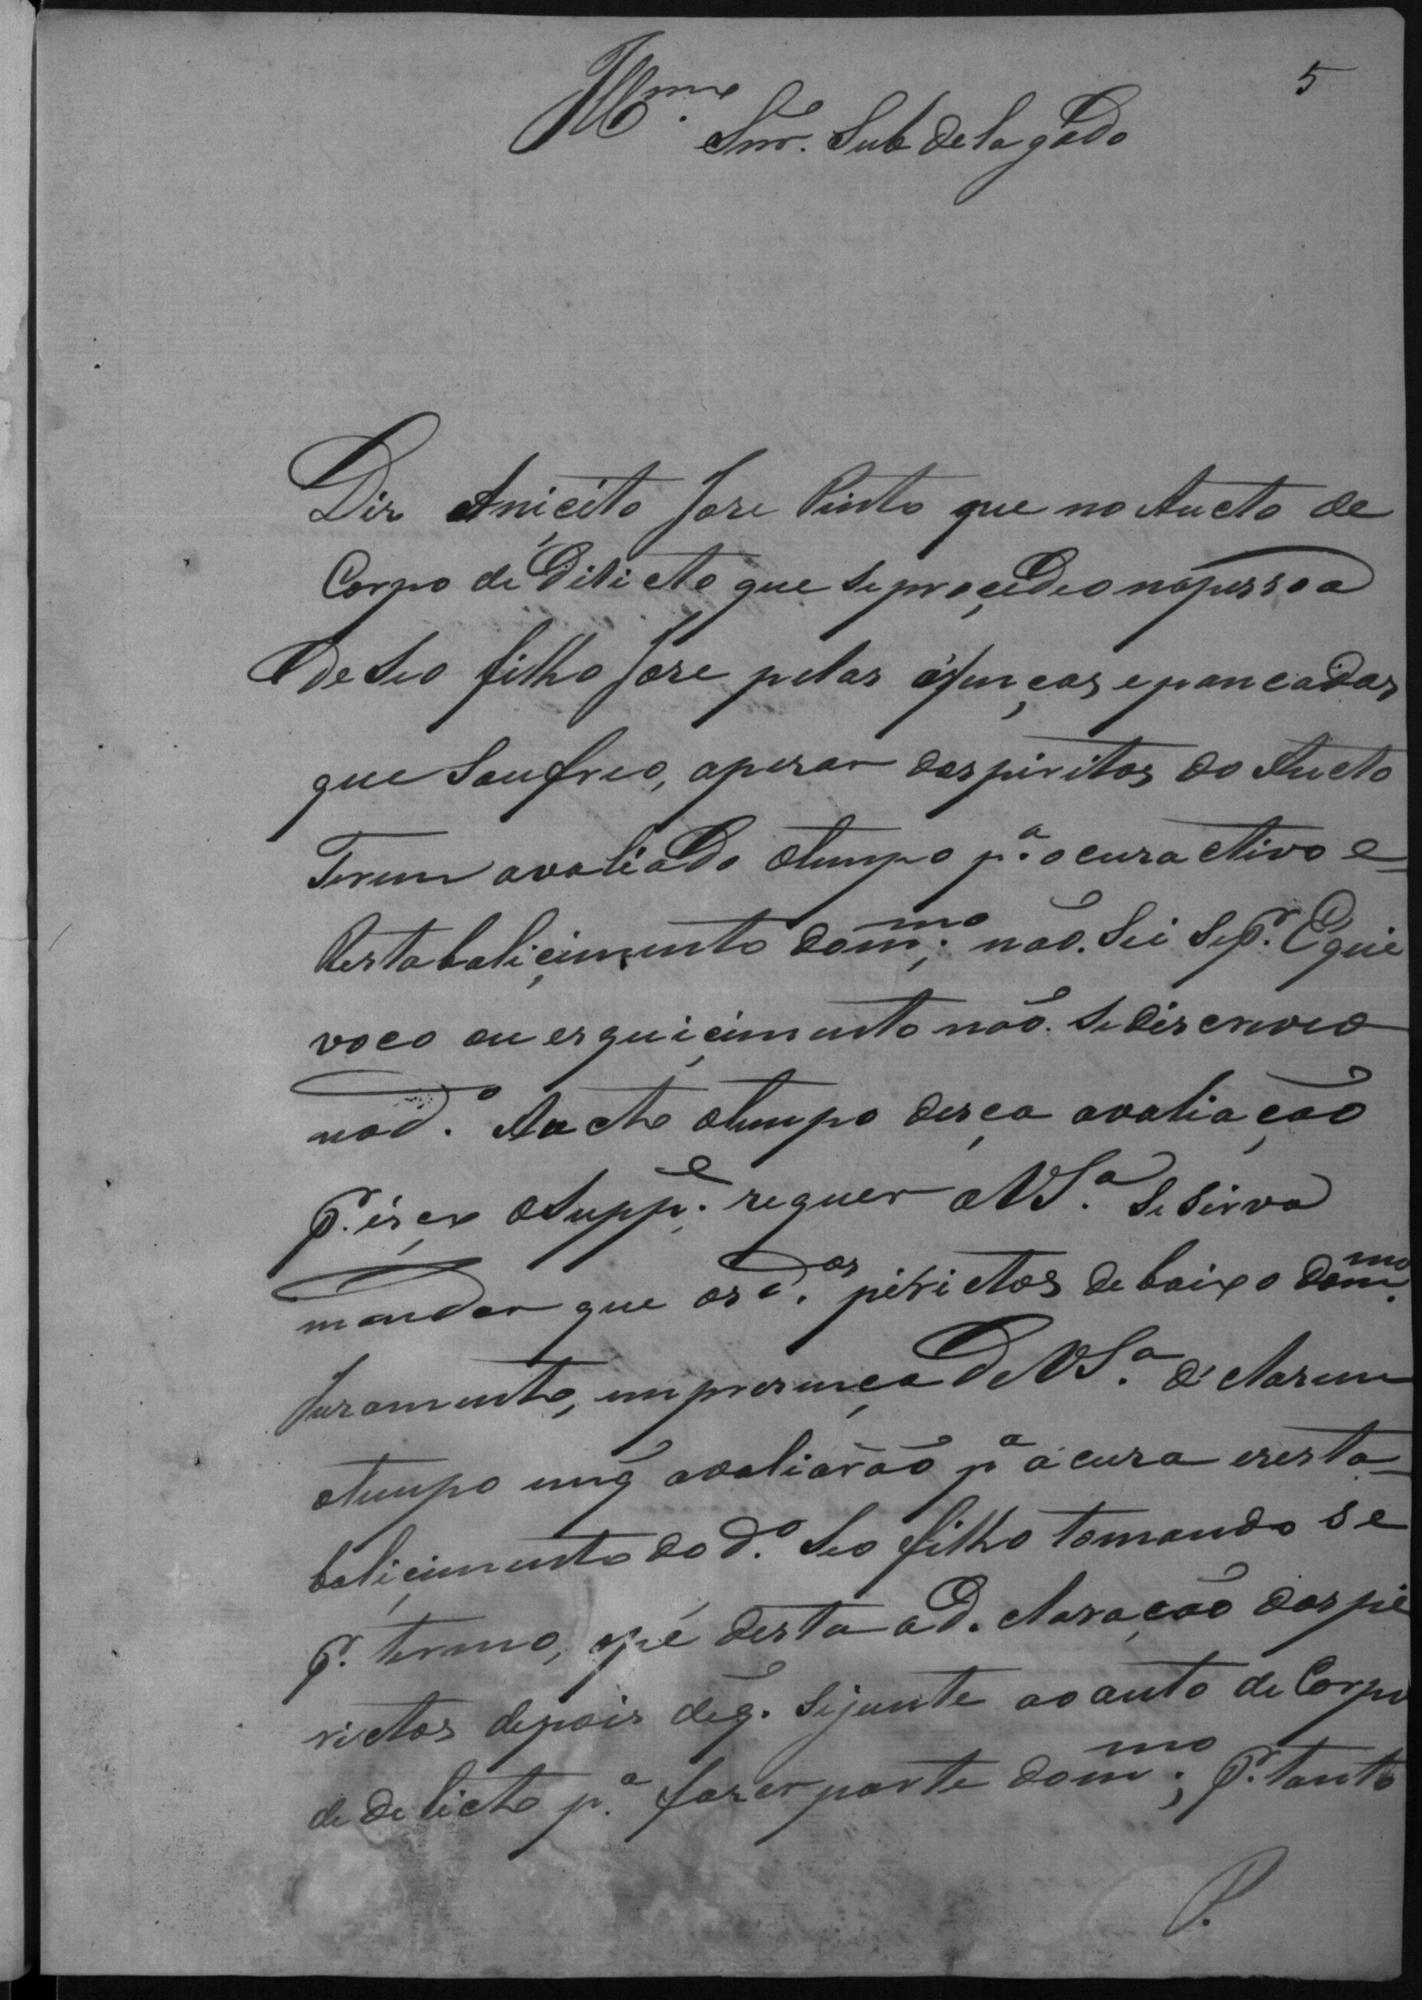 5
Illmo.
Snr. Sub delagado
Diz Aniceito Joze Pinto que no Aucto de
Corpo de Dilicto que se proçedeo na pessoa
de seo filho Joze pelas ófenças e pancadas
que soufreo, apezar dos piritos do Aucto
Terem avaliado o tempo p.ª o curactivo e
Restabaliçimento do mmo; não sei se p.r Equi
voco ou esquiçimento não se discriveo
no d.º Aucto o tempo desça avaliação
P.r isço o Supp.e requer a V S.ª se sirva
mandar que os d.os pirictos debaixo do mmo.
Juramento, em prezença de V S.ª declarem
o tempo em q̃ avaliarão p.ª a cura e resta-
baliçimento do d.º seo filho tomando se
P.r termo, que desta declaração dos pi
rictos depois de q̃. se junte ao auto de Corpo
de delicto p.ª fazer parte do mmo; P.r tanto
P.